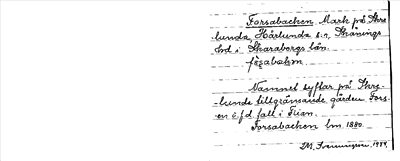 Forsabacken. Mark på Skre
-lunda, Hårlunda s:n, Skånings
hd i Skaraborgs län.
fåsabakm.
Namnet syftar på Skre-
-lunda tillgränsande gården Fors-
en e.f.d. fall i Tian.
Forsabacken lm. 1880.
M. 1984.